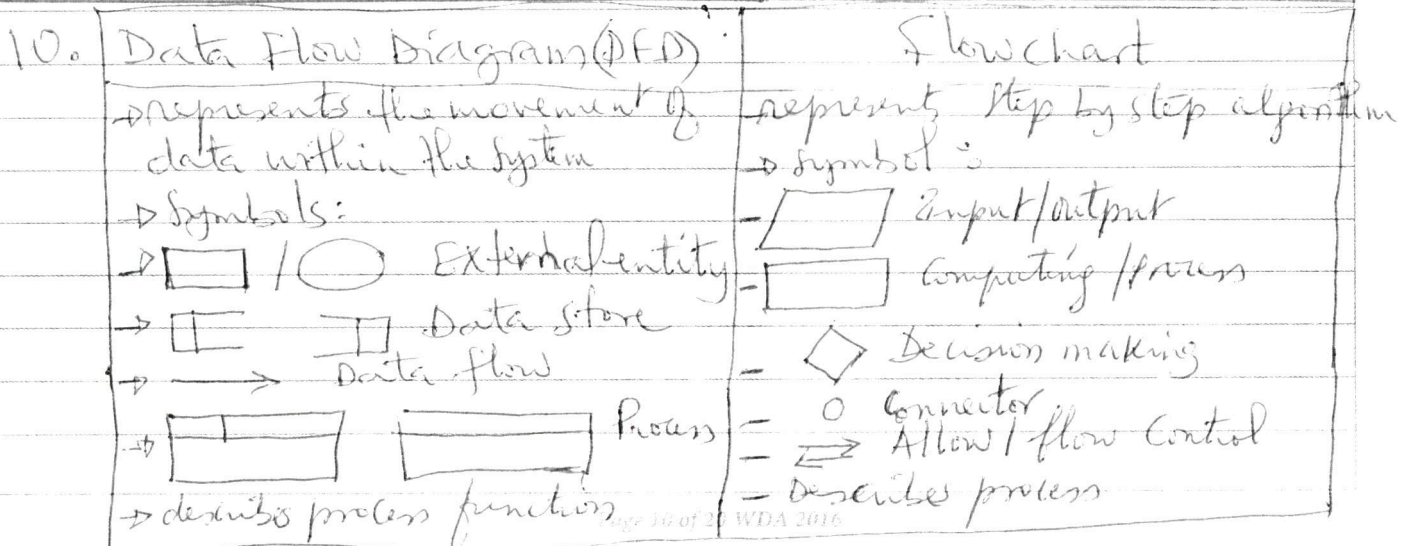 10.
Data Flow Diagram (DFD)
→ represents the movement of
data within the system
→ Symbols:
→ / External entity
→ Data store
→ → Data flow
→ Process
→ describes process function
Flowchart
represent Step by step algorithm
→ symbol :
- Input/output
- Computing / process
- Decision making
- Connector.
- Allow / flow Control
- Describes process
Page 10 of 20 WDA 2016